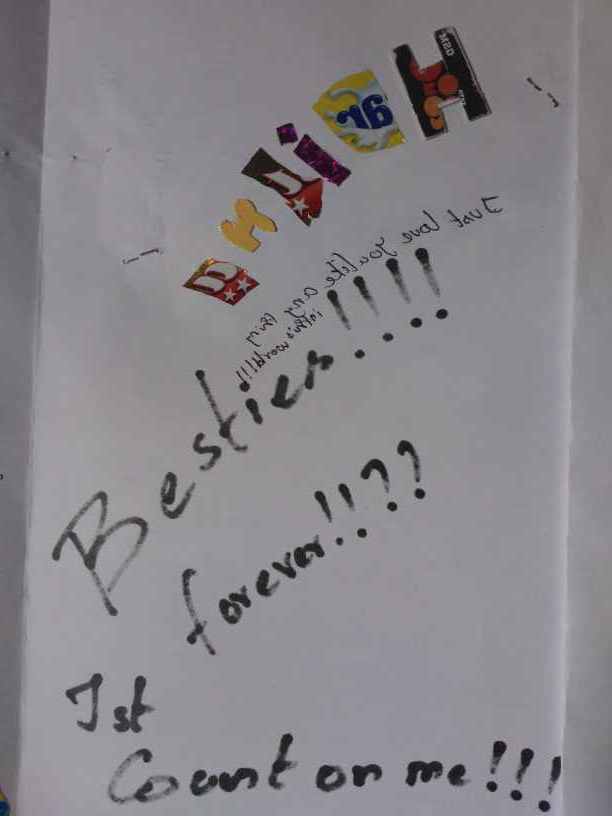 Just love you like any thing
in this world!!!
Besties!!!!
forever!!??
Jst
Count on me!!!